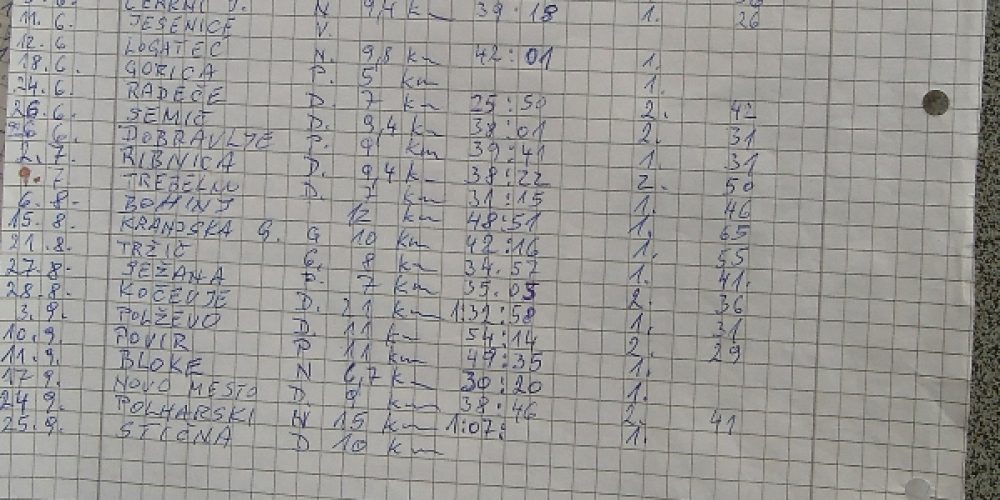 N 9,4 km 39:18 1. 26
11.6. JESENICE V.
12.6 LOGATEC N. 9,8 km 42:01 1.
18.6. GORICA P. 5 km 1.
24.6. RADEČE D. 7 km 25:50 2. 42
26.6. SEMIČ D. 9,4 km 38:01 2. 31
26 6. DOBRAVLJE P. 9 km 39:41 1. 31
2.7. RIBNICA D. 9,4 km 38:22 2. 50
9.7 TREBELNO D. 7 km 31:15 1. 46
6.8. BOHINJ 12 km 48:51 1. 65
15.8. KRANJSKA G. G 10 km 42:16 1. 55
21.8. TRŽIČ G. 8 km 34.57 1. 41.
27.8. SEŽANA P. 7 km 35.05 2. 36
28.8. KOČEVJE D. 21 km 1:31:58 1. 31
3.9. POLŽEVO D 11 km 54:14 2. 29
10.9. POVIR P 11 km 49:35 1.
11.9. BLOKE N 6,7 km 30:20 1.
17 9. NOVO MESTO D. 9 km 38:46 2. 41
24 9. POLHARSKI N 15 km 1:07: 1.
25.9. STIČNA D 10 km